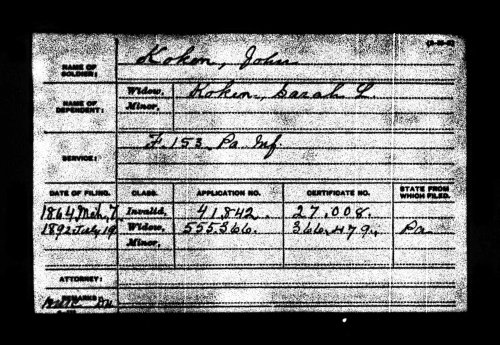 NAME OF SOLDIER: Koken, John
NAME OF DEPENDENT: Widow, Koken, Sarah L.
Minor,
SERVICE: F. 153 Pa Inf.
DATE OF FILING. CLASS. APPLICATION NO. CERTIFICATE NO. STATE FROM WHICH FILED.
1864 Mch. 7. Invalid, 41.842. 27.008.
1892 July 19 Widow, 555.366. 366.479. Pa
Minor,
ATTORNEY:
REMARKS